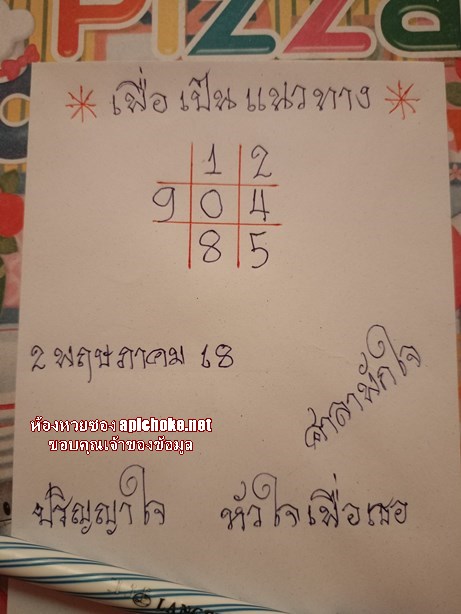 PIZZA
* เพื่อ เป็น แนวทาง *
1 2
9 0 4
8 5
2 พฤษภาคม 18
ศาลาพักใจ
ห้องหวยซอง apichoke.net
ขอบคุณเจ้าของข้อมูล
ปริญญาใจ หัวใจเพื่อเธอ